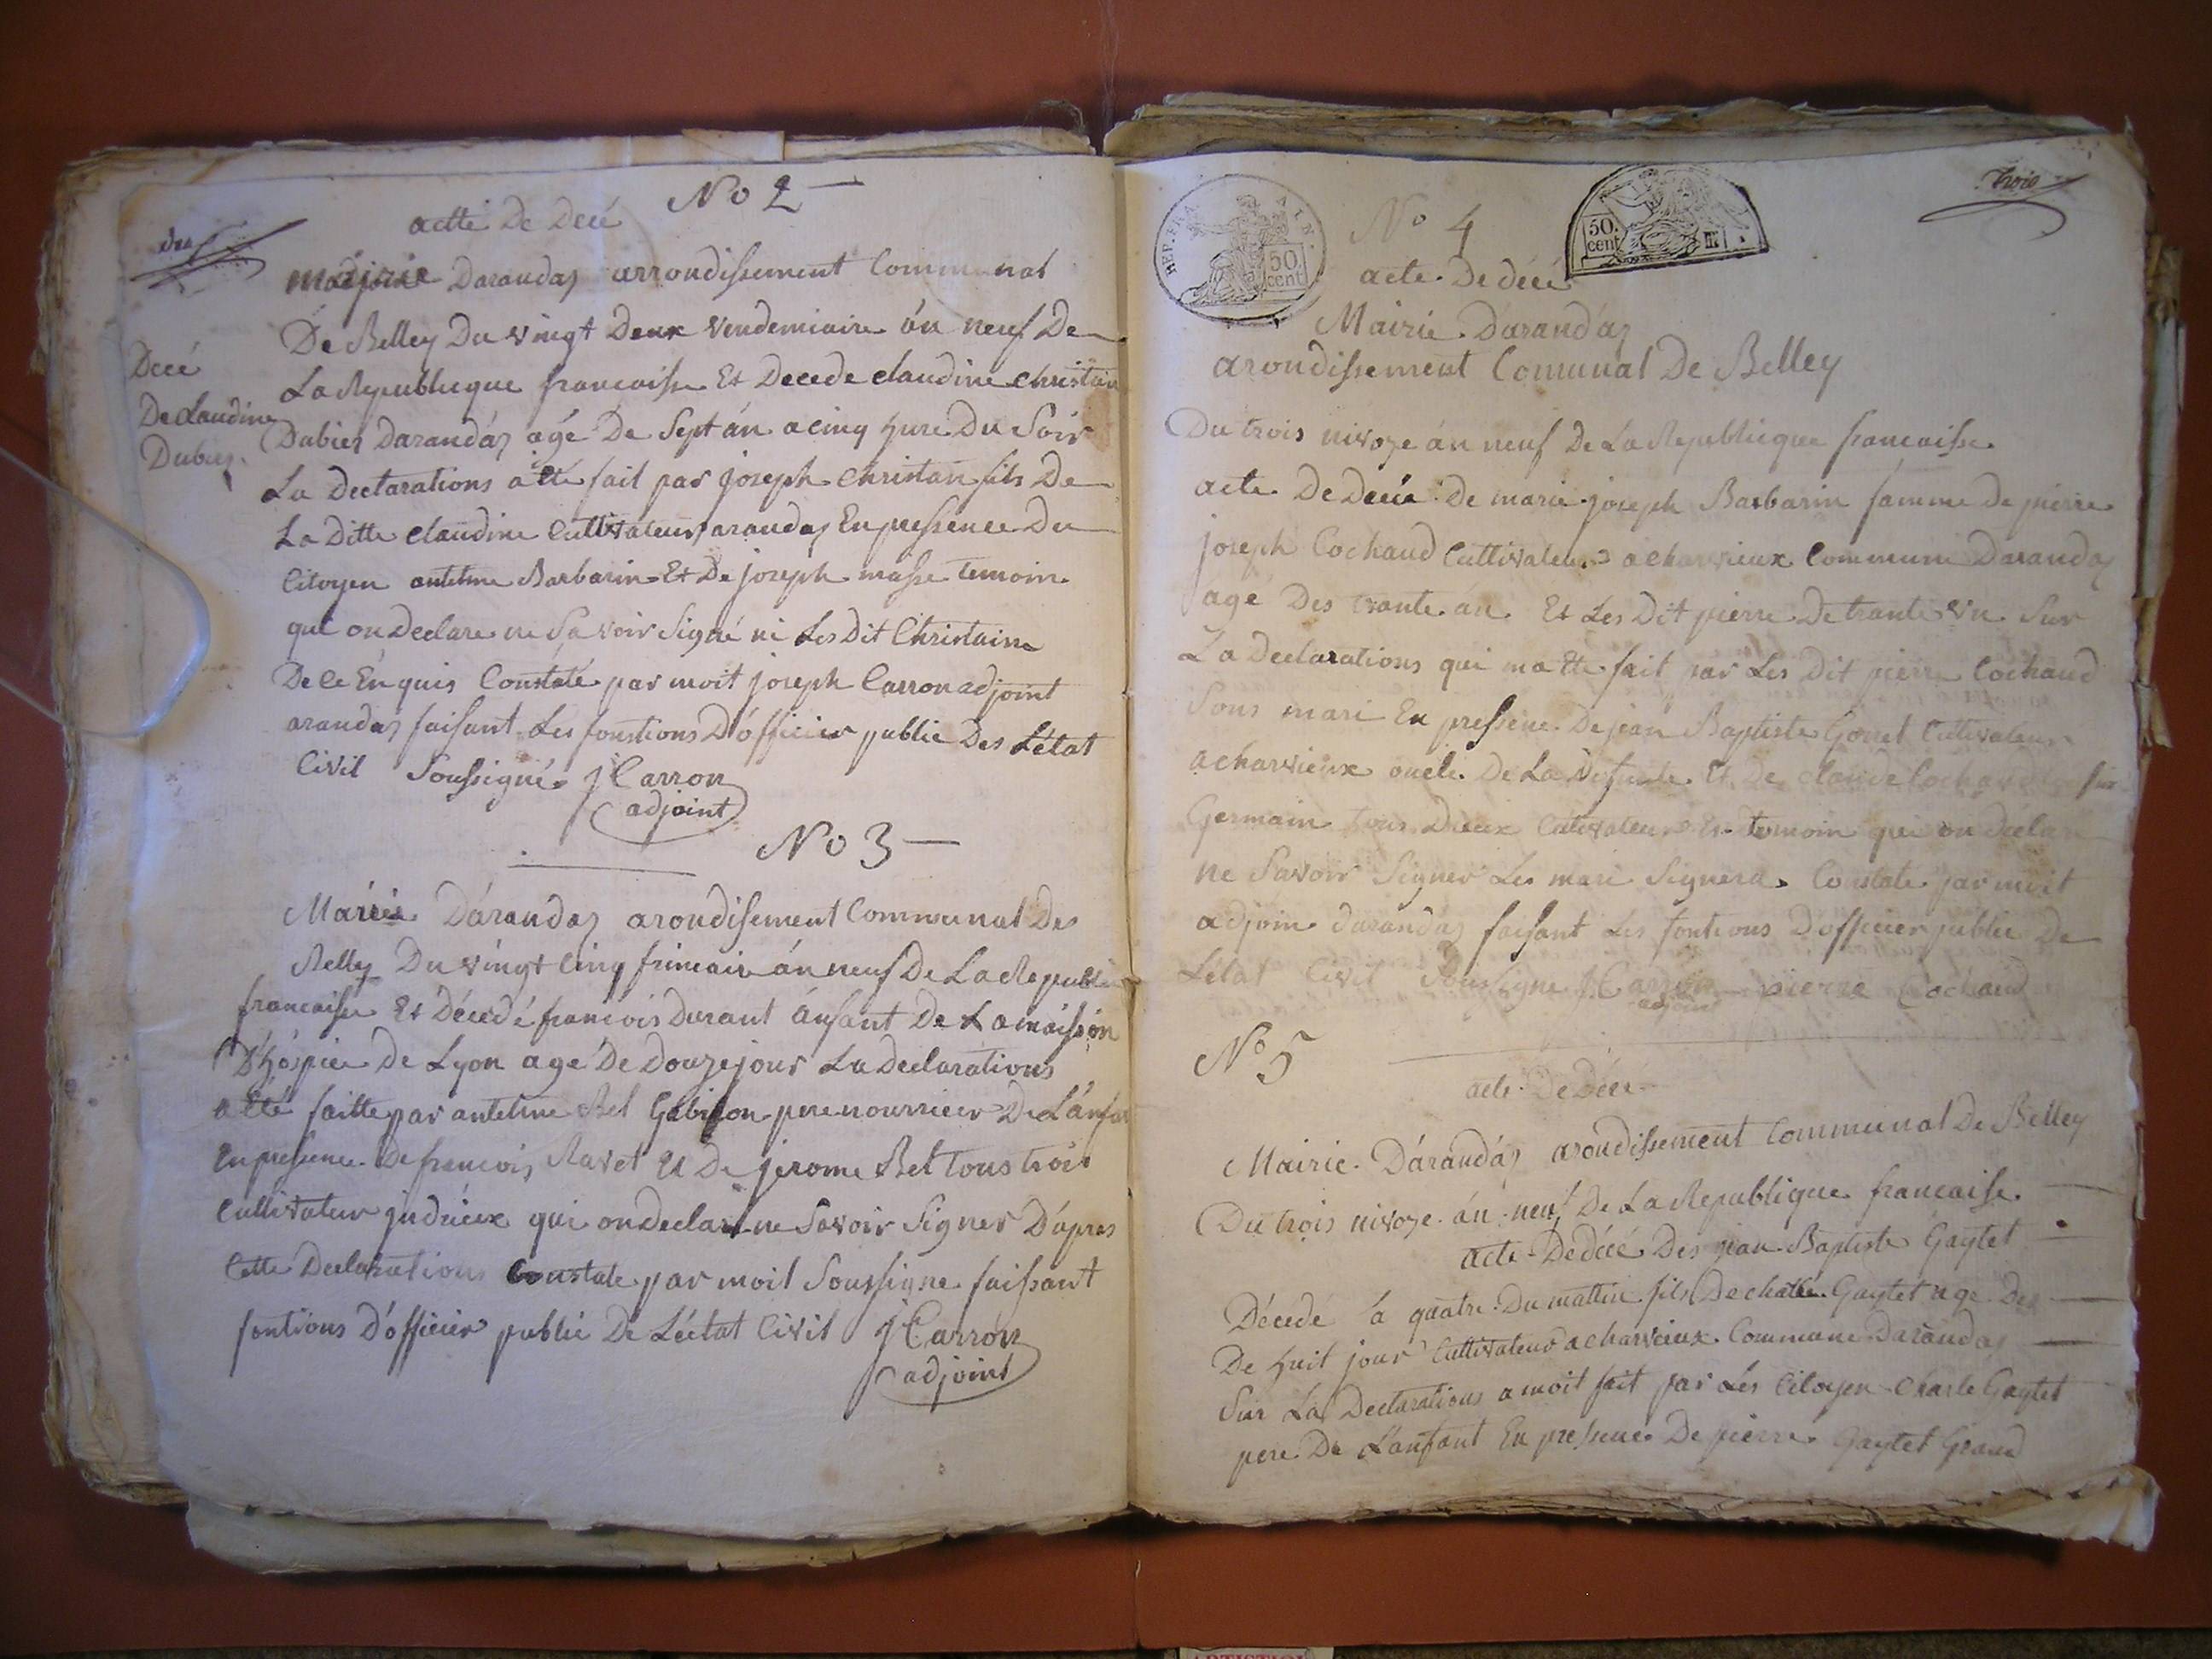 No 2
actte De Decé
Madjoirie Darandas arrondissement Communal
De Belley Du vingt Deux vendemiaire án neuf De
La Republicque francaisse Et Decede claudine christain
Dubier Darandás agé De Sept án a cinq hure Du Soir
La Dectarations a etté fait par joseph christain fils De
La Ditte claudine Cultivateur arandas En pressence Du
Citoyen antelme Barbarin Et De joseph masse temoin
qui on Declare ne Savoir Signé ni Les Dit Christaine
De ce Enquis Constaté par moit joseph Carron adjoint
arandas faisant Les fonstions D'officier public Des L'état
Civil Soussigné J Carron
adjoint
Decé
De claudine
Dubier
No 3
Mairie Dárandas arondisement Communal Des
Belley Du vingt Cinq frimair án neuf De La Republi
francaisse Et Décedé francois Durant ánfant De La maisson
D'hóspice De Lyon agé De Douze jour La Declarations
a été faitte par antelme Bel Gabision pere nourricier De L'ánfan
En pressence De francois Ravet Et De jerome Bel tous trois
Cultivateur jndrieux qui on declare ne Savoir Signer D'ápres
Cette Declarations Constate par moit Soussigne faissant
fontions D'officier public De L'éctat Civil J Carron
adjoint
Trois
REP. FRA
50
cent
50.
cent
No 4
acte De décé
Mairie D'arandas
arondissement Comunal De Belley
Du trois nivoze án neuf De La Republicque francaisse
acte De Decée De marie joseph Barbarin famme de pierre
joseph Cochaud Cultivateur a charvieux Commune Darandas
agé Des trante án Et Les Dit pierre De trante vn Sur
La Declarations qui ma Ette fait par Les Dit pierre Cochaud
Sons mari En pressence De jean Baptiste Gonet Cultivateur
a charvieux oncle De La Defunte Et De claude Cochaud
Germain tous Dieux Cultivateur Et temoin qui on declare
ne Savoir Signer Les mari Signera Constate par moit
adjoin darandas faisant Les fontions D'officier public De
L'état Civil Soussigne J Carron pierre Cochaud
adjoint
No 5
acte De Décé
Mairie Dárandás arondissement Communal De Belley
Du trois nivoze án neuf De La Republique francaisse
acte De décé Des jean Baptiste Gaytet
Décede La quatre Du mattin fils De charle Gaytet age Des
De huit jour Cultivateur a charvieux Commune Darandas
Sur La Dectarations a moit fait par Les Citoyen Charle Gaytet
pere De L'anfant En pressence De pierre Gaytet Grand